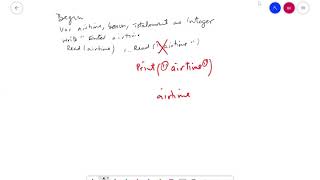 Begin
Var airtime, bonus, istatement as Integer
write " Enter airtime
Read (airtime) , Read (" airtime ")
Print (" airtime ")
airtime